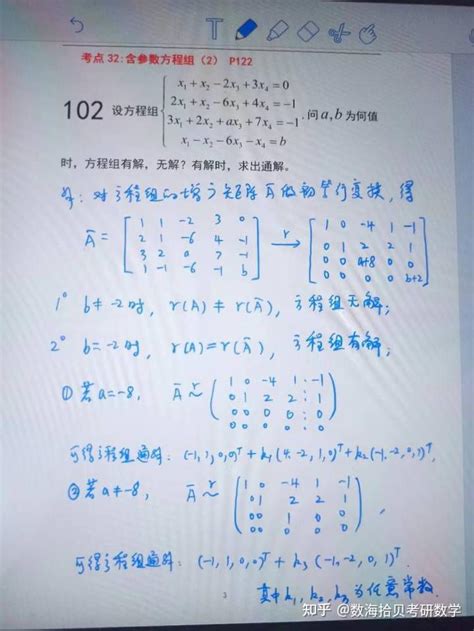 考点 32:含参数方程组（2） P122
102 设方程组
x₁+x₂-2x₃+3x₄=0
2x₁+x₂-6x₃+4x₄=-1
3x₁+2x₂+ax₃+7x₄=-1
x₁-x₂-6x₃-x₄=b
, 问 a,b 为何值
时，方程组有解，无解？有解时，求出通解。
解：对方程组的增广矩阵 Ā 做初等行变换，得
Ā = [ 1 1 -2 3 0
2 1 -6 4 -1
3 2 a 7 -1
1 -1 -6 -1 b ] →r [ 1 0 -4 1 -1
0 1 2 2 1
0 0 a+8 0 0
0 0 0 0 b+2 ]
1° b≠-2时, r(A)≠r(Ā), 方程组无解;
2° b=-2时, r(A)=r(Ā), 方程组有解;
① 若a=-8, Ā ~r ( 1 0 -4 1 -1
0 1 2 2 1
0 0 0 0 0
0 0 0 0 0 )
可得方程组通解: (-1,1,0,0)ᵀ+k₁(4,-2,1,0)ᵀ+k₂(-1,-2,0,1)ᵀ.
② 若a≠-8, Ā ~r ( 1 0 -4 1 -1
0 1 2 2 1
0 0 1 0 0
0 0 0 0 0 ),
可得方程组通解: (-1,1,0,0)ᵀ+k₃(-1,-2,0,1)ᵀ.
其中k₁,k₂,k₃为任意常数.
3
知乎 @数海拾贝考研数学